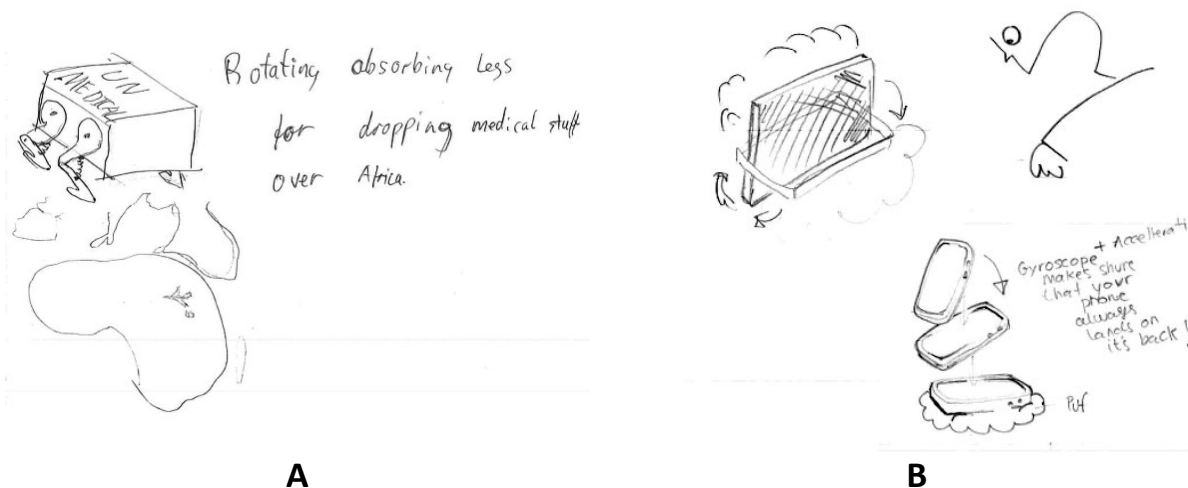 UN
MEDICAL
Rotating absorbing legs
for dropping medical stuff
over Africa.
Gyroscope + Accellerati
makes shure
that your
phone
always
lands on
it's back!
Puf
A
B